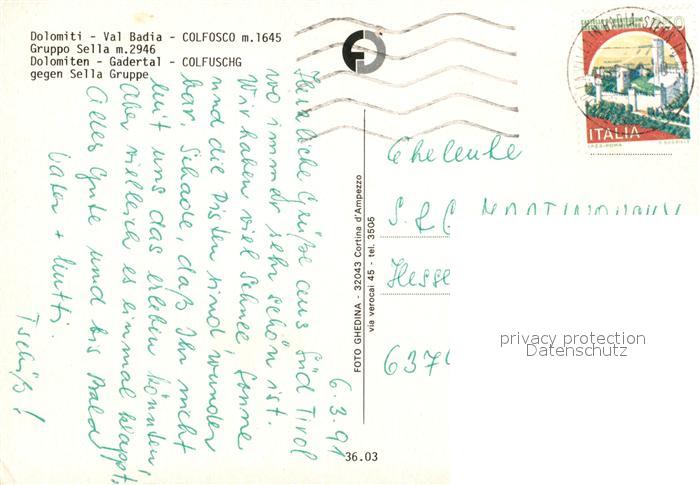 Dolomiti - Val Badia - COLFOSCO m.1645
Gruppo Sella m.2946
Dolomiten - Gadertal - COLFUSCHG
gegen Sella Gruppe
6.3.91
Herzliche Grüße aus Süd Tirol
wo immer sehr schön ist.
Wir haben viel Schnee, Sonne
und die Pisten sind wunder
bar. Schade, daß Ihr nicht
mit uns das erleben könnten,
aber vielleich es einmal klappt,
Alles Gute und bis Bald
Vater + Mutti.
Tschüß!
FOTO GHEDINA - 32043 Cortina d'Ampezzo
via verocai 45 - tel. 3505
36.03
ITALIA
Eheleute
S. &
Hesse
637
privacy protection
Datenschutz